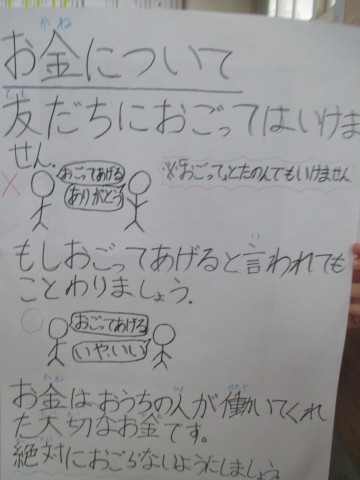 お金について
友だちにおごってはいけま
せん.
おごってあげる
ありがとう
※「おごって」とたのんでもいけません
もしおごってあげると言われても
ことわりましょう.
おごってあげる
いや、いい
お金はおうちの人が働いてくれ
た大切なお金です。
絶対におごらないようにしましょう。